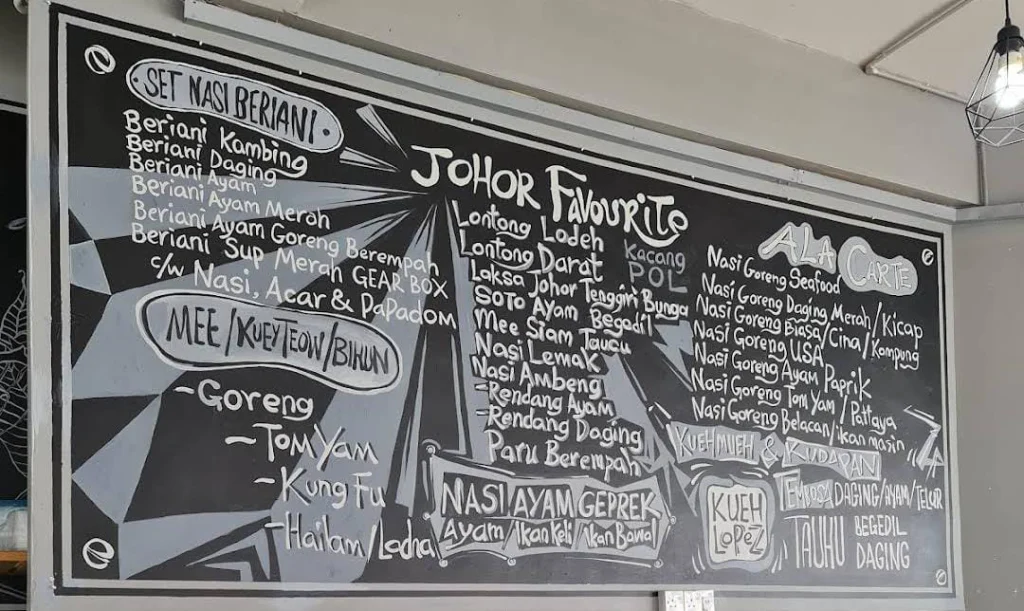 SET NASI BERIANI
Beriani Kambing
Beriani Daging
Beriani Ayam
Beriani Ayam Merah
Beriani Ayam Goreng Berempah
Beriani Sup Merah GEAR BOX
c/w Nasi, Acar & PaPadom
MEE/KUEYTEOW/BIHUN
-Goreng
-Tom Yam
-Kung Fu
-Hailam/Ladna
JOHOR FAVOURITE
Lontong Lodeh
Lontong Darat
Kacang
POL
Laksa Johor Tenggiri Bunga
SOTO Ayam Begedil
Mee Siam Taucu
Nasi Lemak
Nasi Ambeng
-Rendang Ayam
-Rendang Daging
Paru Berempah
NASI AYAM GEPREK
Ayam/Ikan Keli/Ikan Bawal
ALA CARTE
Nasi Goreng Seafood
Nasi Goreng Daging Merah/Kicap
Nasi Goreng Biasa/Cina/Kampung
Nasi Goreng USA
Nasi Goreng Ayam Paprik
Nasi Goreng Tom Yam/Pattaya
Nasi Goreng Belacan/ikan masin
KUEH MUEH & KUDAPAN
KUEH
LOPEZ
DAGING/AYAM/TELUR
TAUHU BEGEDIL
DAGING